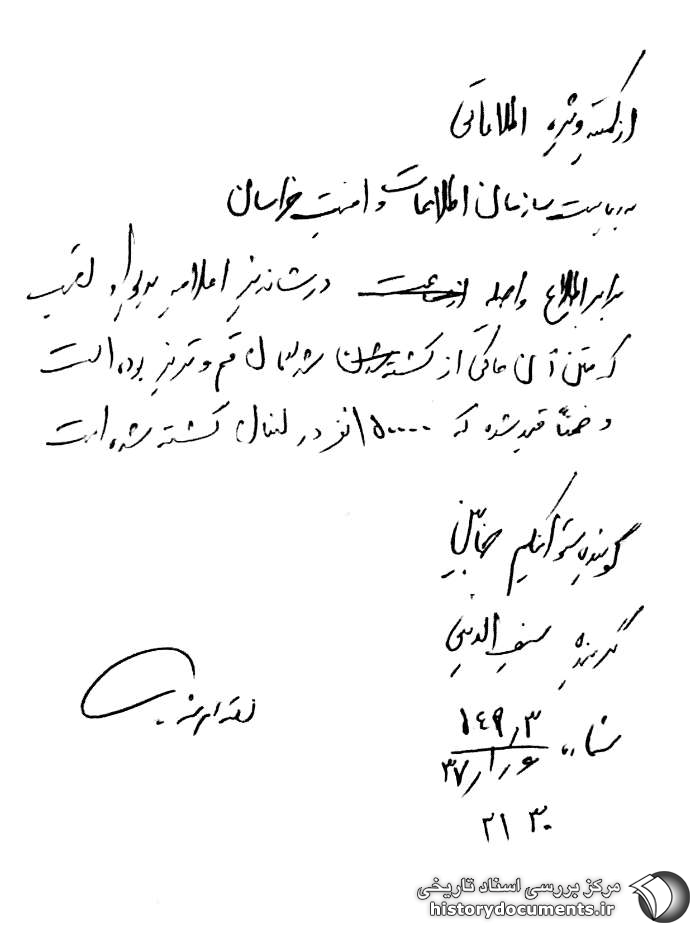 از کمیته ویژه اطلاعاتی
به ریاست سازمان اطلاعات و امنیت خراسان
برابر اطلاع واصله در شاندیز اعلامیه به دیوار نصب
که متن آن حاکی از کشته شدن قم و تبریز بوده است
و ضمناً قید شده که ۱۵۰۰۰۰ نفر در لبنان کشته شده است
گوینده ستوانیکم
گیرنده سیف الدینی
شماره ۱۴۹٫۳
۳۷/۱/۶
۲۱۳۰
مرکز بررسی اسناد تاریخی
historydocuments.ir